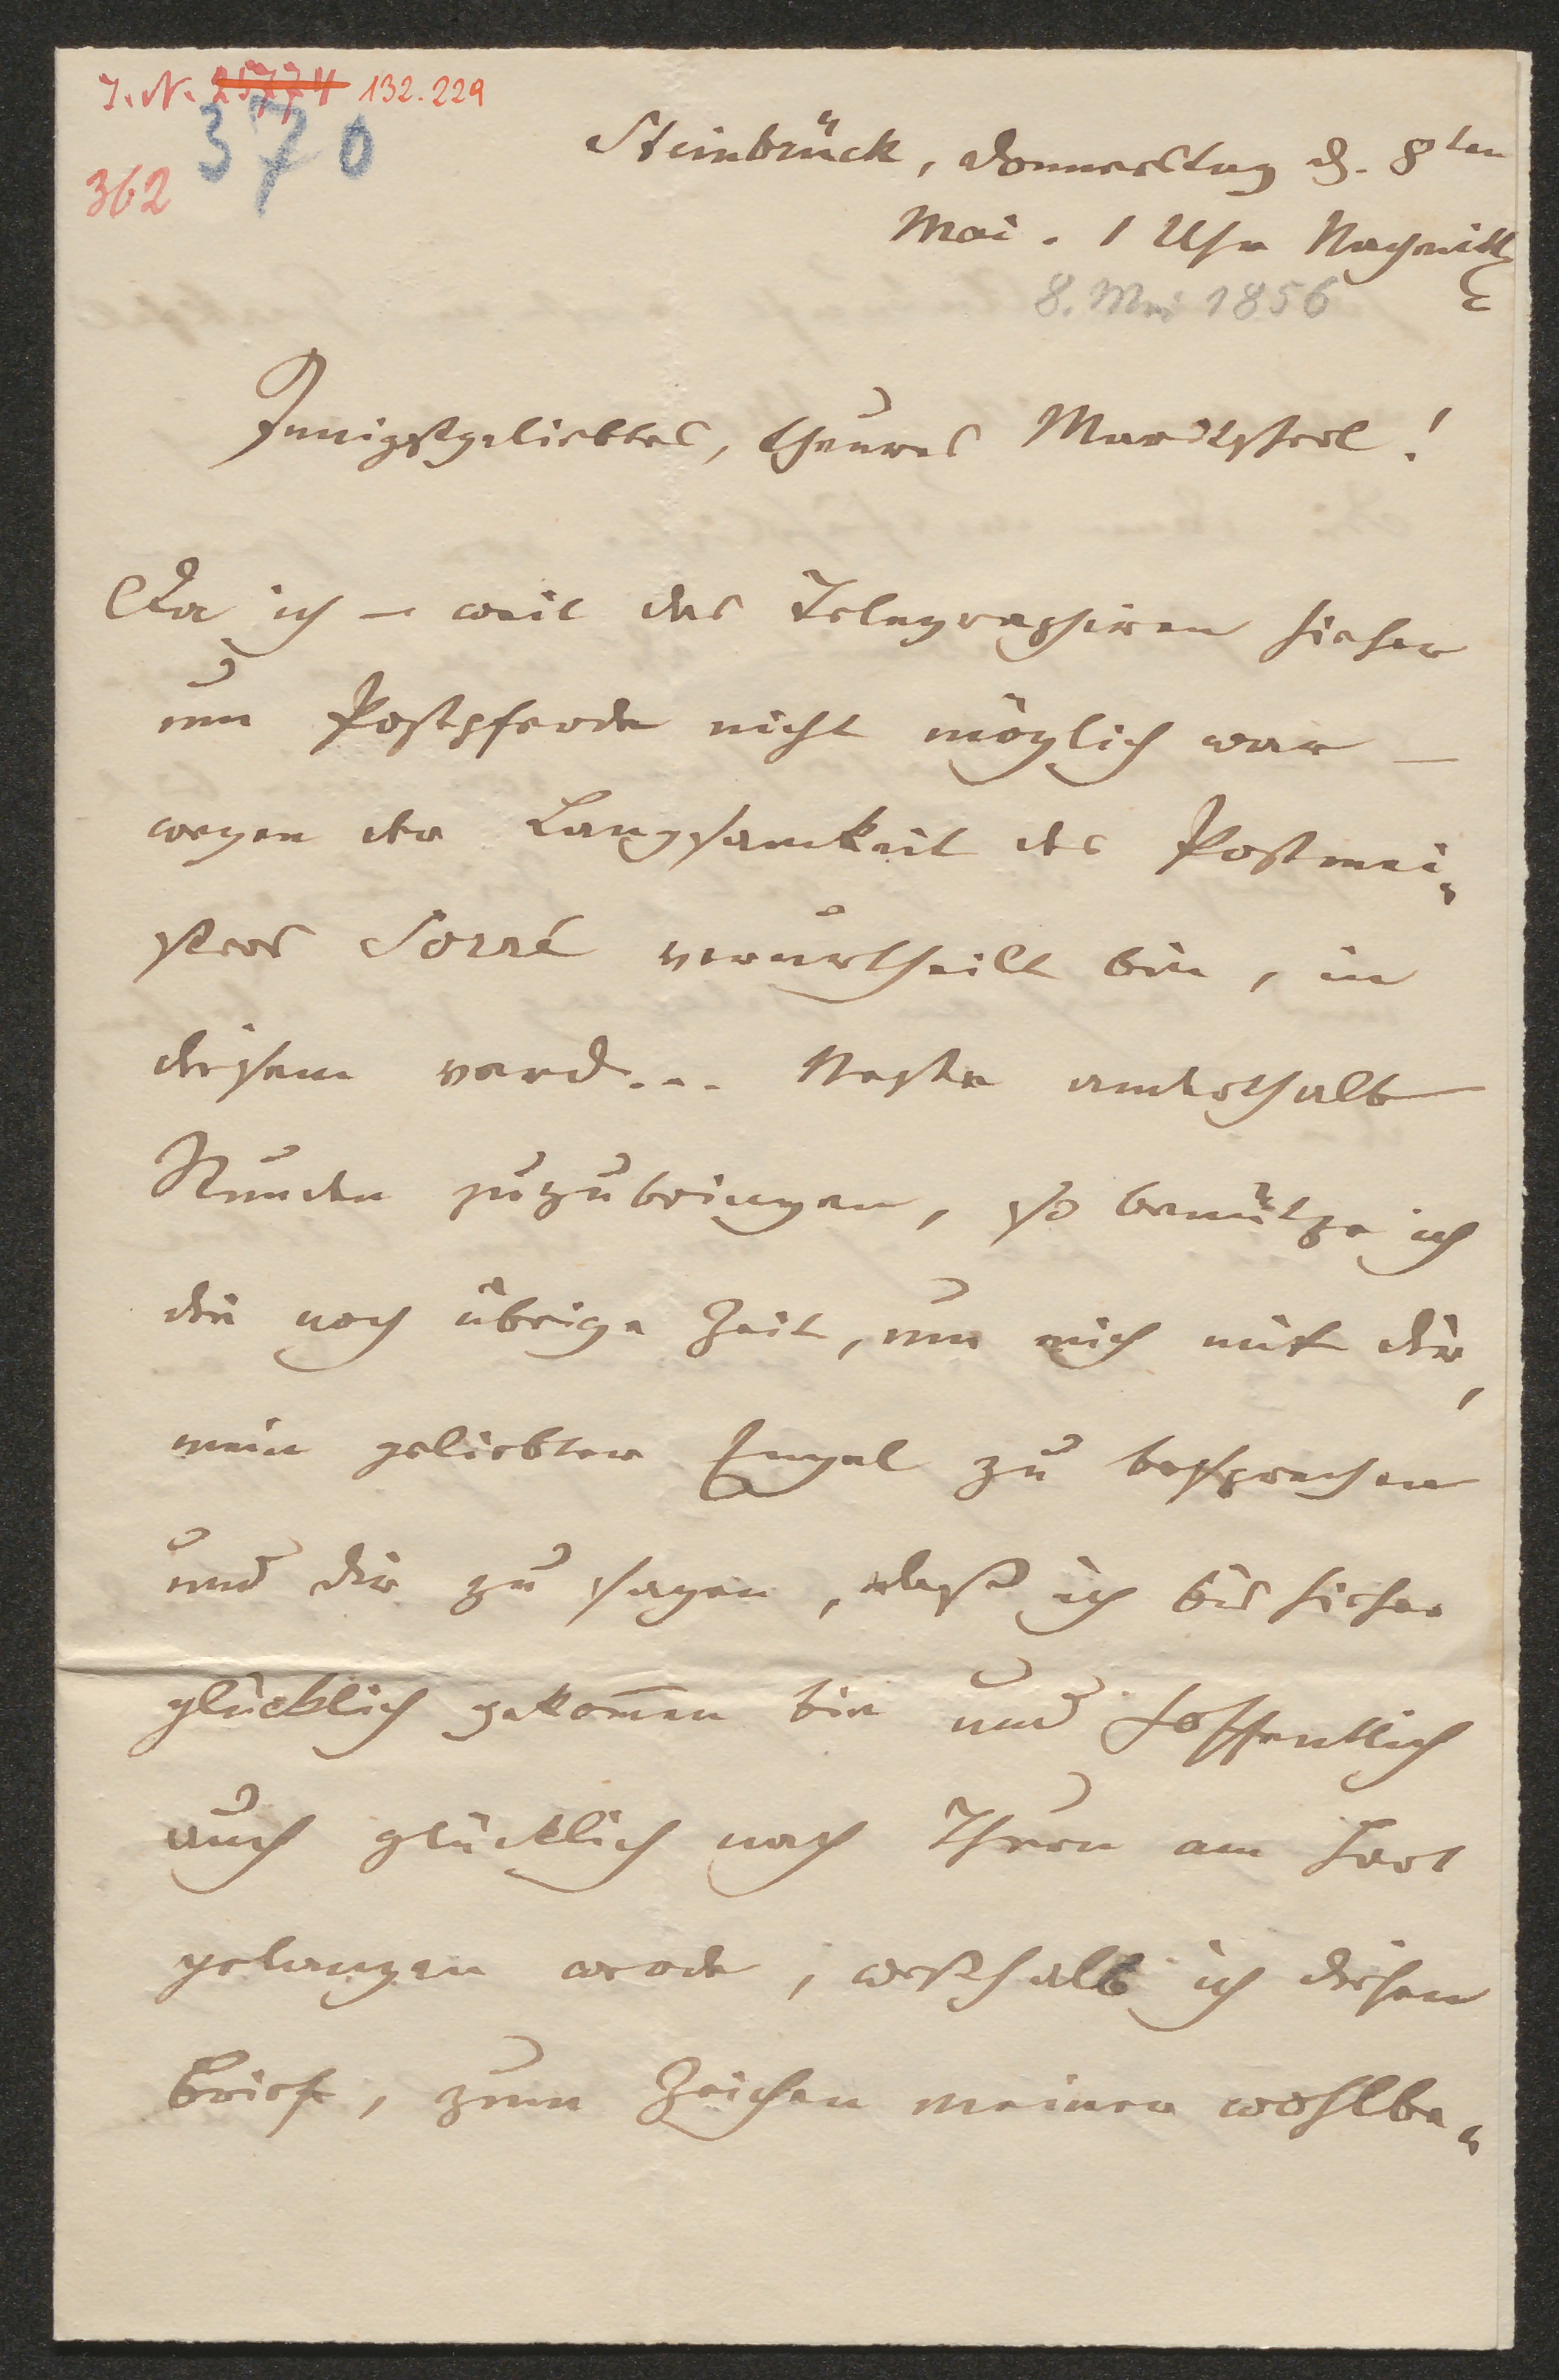 J. N. 25774 132.229
370
362
Steinbrück, Donnerstag d. 8ten
Mai. 1 Uhr Nachmittg
8. Mai 1856
Innigstgeliebtes, theures
Da ich – weil das Telegraphiren hieher
um Postpferde nicht möglich war –
wegen der Langsamkeit des Postmei„
sters Sorré verurtheilt bin, in
diesem verd... Neste anderthalb
Stunden zuzubringen, so benütze ich
die noch übrige Zeit, um mich mit dir,
mein geliebter Engel zu besprechen
und dir zu sagen, daß ich bis hieher
glücklich gekom̄en bin und hoffentlich
auch glücklich nach Thurn am Hart
gelangen werde, weßhalb ich diesen
Brief, zum Zeichen meiner wohlbe„